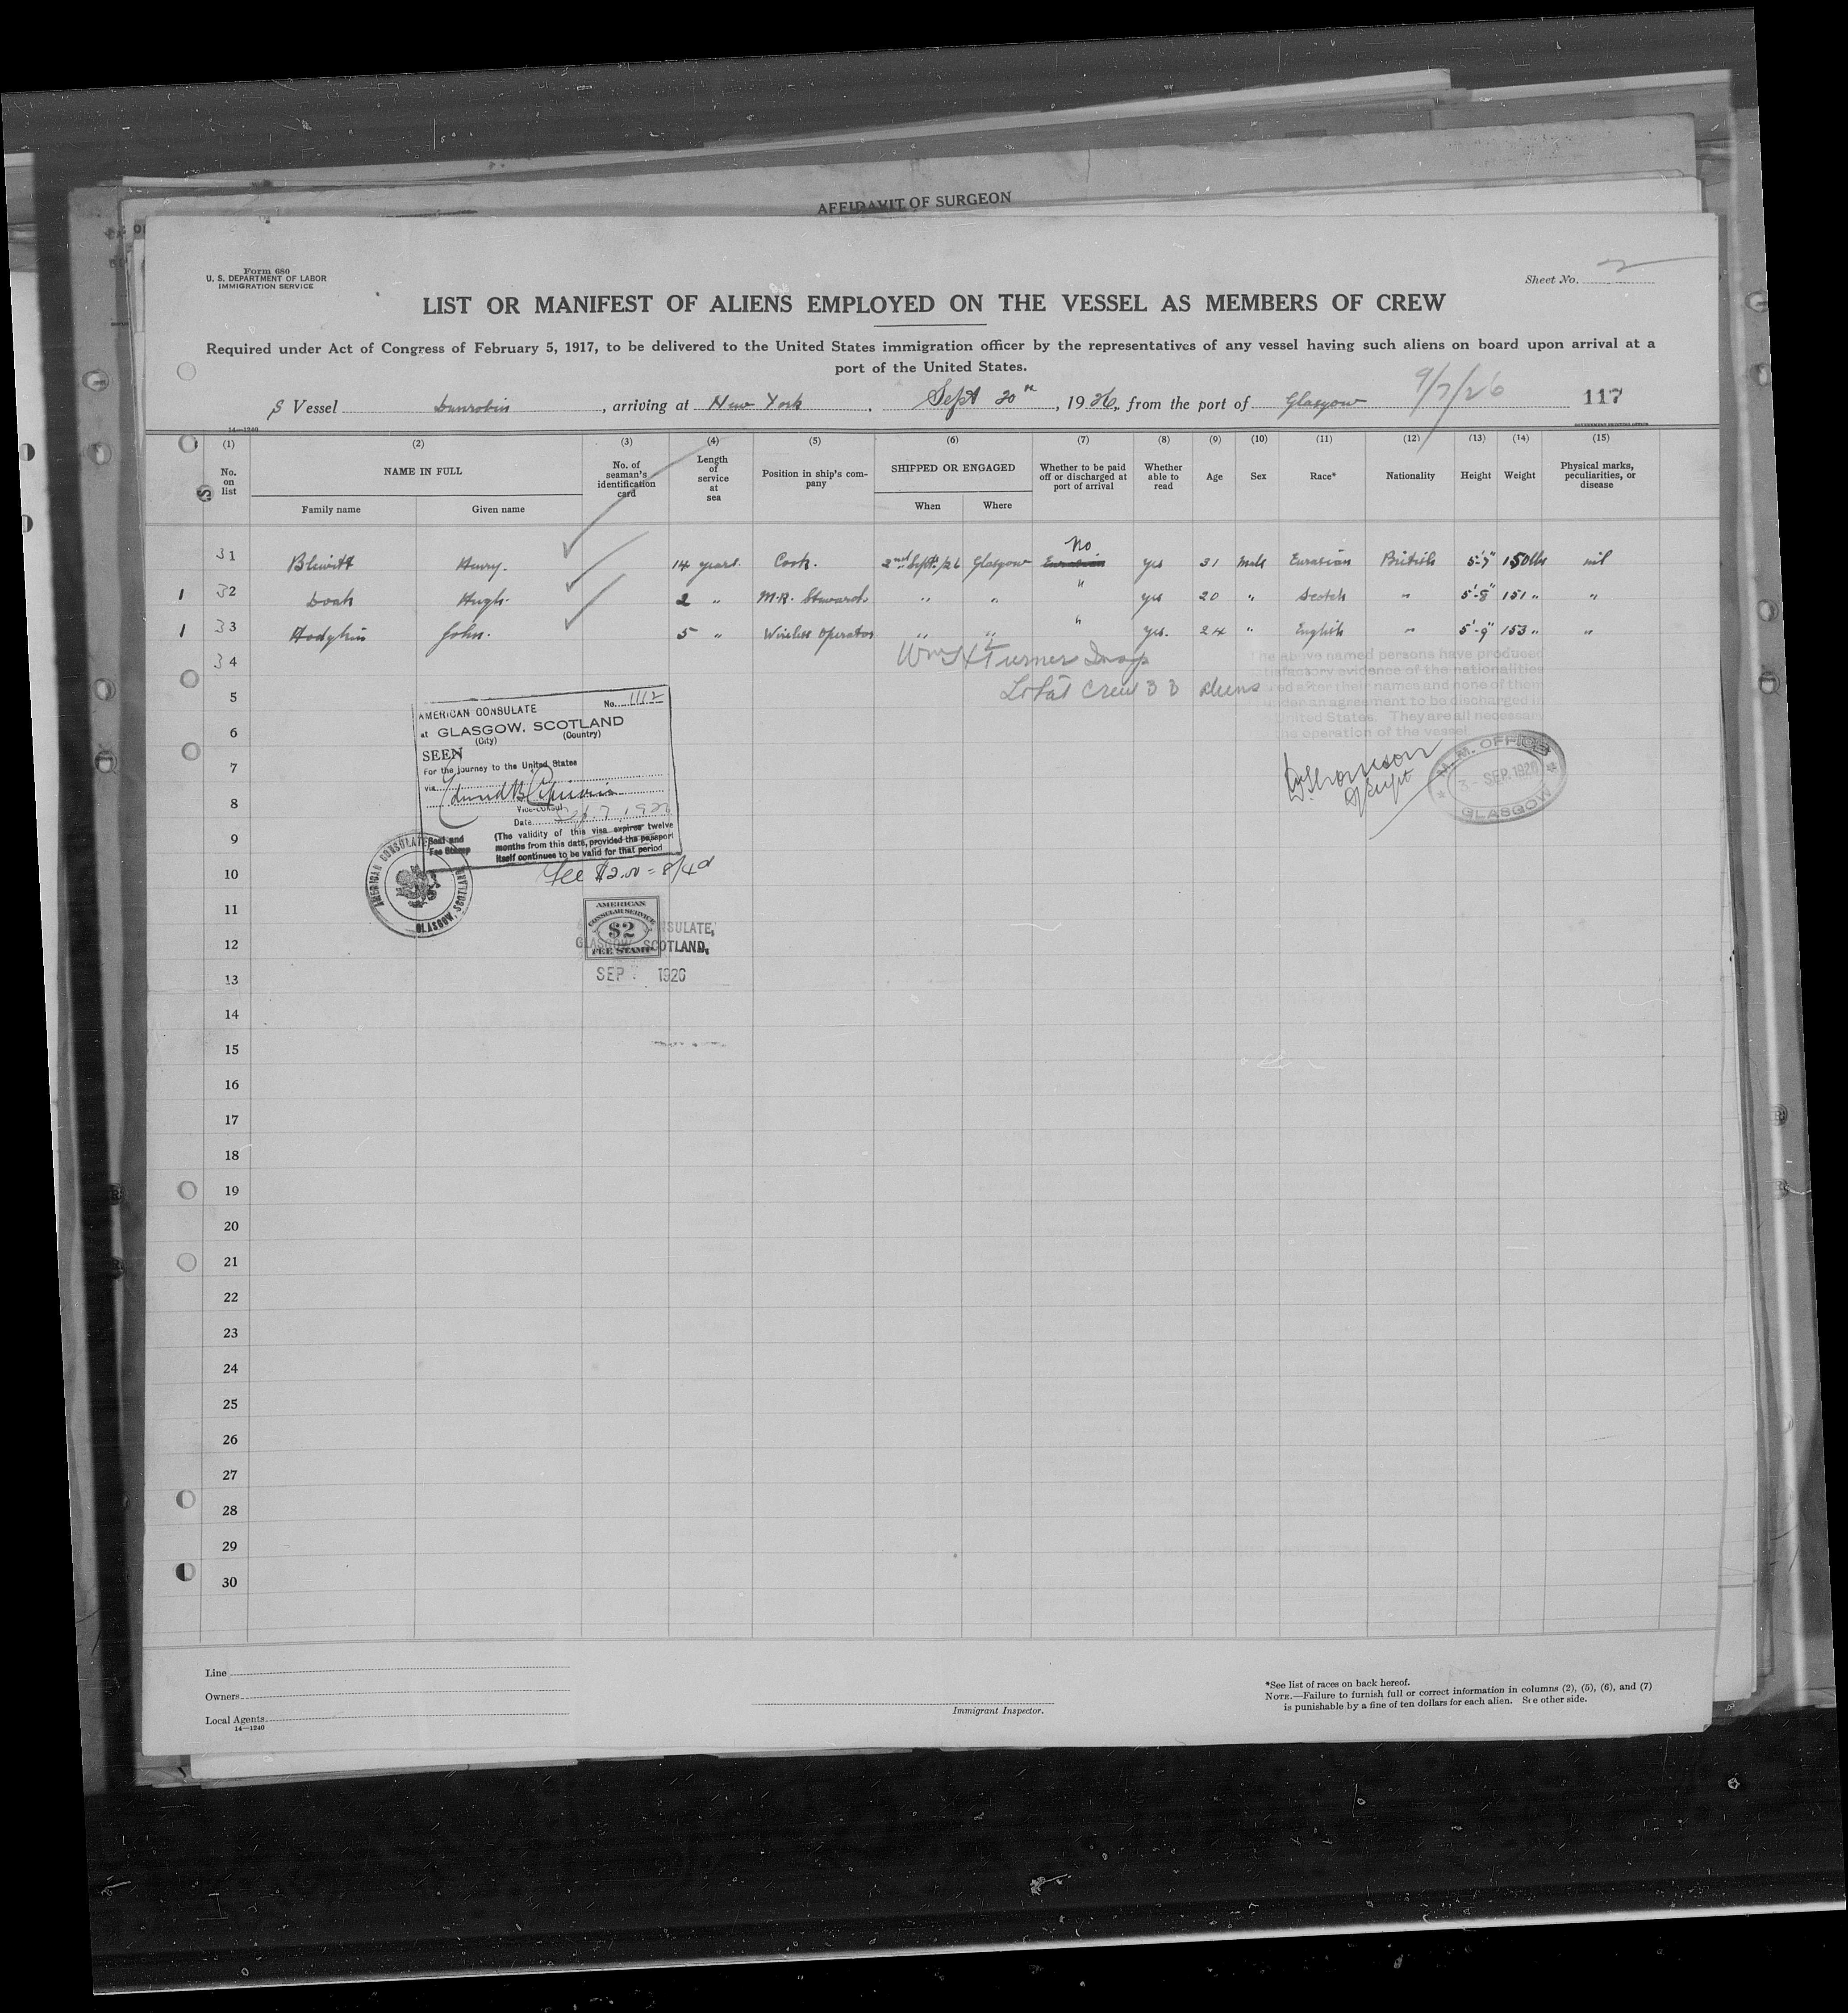 AFFIDAVIT OF SURGEON
Form 680
U. S. DEPARTMENT OF LABOR
IMMIGRATION SERVICE
Sheet No. 2
LIST OR MANIFEST OF ALIENS EMPLOYED ON THE VESSEL AS MEMBERS OF CREW
Required under Act of Congress of February 5, 1917, to be delivered to the United States immigration officer by the representatives of any vessel having such aliens on board upon arrival at a
port of the United States.
S Vessel Dunrobin, arriving at New York, Sept 20th, 1926, from the port of Glasgow 9/7/26 117
14—1240
GOVERNMENT PRINTING OFFICE
(1) (2) (3) (4) (5) (6) (7) (8) (9) (10) (11) (12) (13) (14) (15)
No. on list NAME IN FULL No. of seaman's identification card Length of service at sea Position in ship's company SHIPPED OR ENGAGED Whether to be paid off or discharged at port of arrival Whether able to read Age Sex Race* Nationality Height Weight Physical marks, peculiarities, or disease
Family name Given name When Where
31 Blewitt Henry. 14 years. Cook. 2nd Sept./26 Glasgow No Eurasian yes 31 Male Eurasian British 5'-7" 150lbs nil
1 32 Doak Hugh. 2 " M.R. Steward. " " " yes 20 " Scotch " 5'-8" 151 " "
1 33 Hodgkin John. 5 " Wireless Operator " " " yes. 24 " English " 5'-9" 153 " "
34 Wm H Turner Insp
The above named persons have produced
satisfactory evidence of the nationalities
5 Total Crew 33 aliens
after their names and none of them
under an agreement to be discharged in
United States. They are all necessary
operation of the vessel.
6
7
8
9
10
11
12
13
14
15
16
17
18
19
20
21
22
23
24
25
26
27
28
29
30
AMERICAN CONSULATE No. 1112
at GLASGOW, SCOTLAND
(City) (Country)
SEEN
For the journey to the United States
via
Vice-Consul
Date Sep. 7, 1926
(The validity of this visa expires twelve
months from this date, provided the passport
itself continues to be valid for that period
Seal and
Fee Stamp
AMERICAN CONSULATE
GLASGOW, SCOTLAND
Fee $2.00 = 8/4d
AMERICAN
CONSULAR SERVICE
$2
FEE STAMP
NSULATE,
GLASGOW, SCOTLAND,
SEP 1926
Thomson
Supt
M. M. OFFICE
3 - SEP. 1926
GLASGOW
Line
Owners
Local Agents
14—1240
Immigrant Inspector.
*See list of races on back hereof.
NOTE.—Failure to furnish full or correct information in columns (2), (5), (6), and (7)
is punishable by a fine of ten dollars for each alien. See other side.